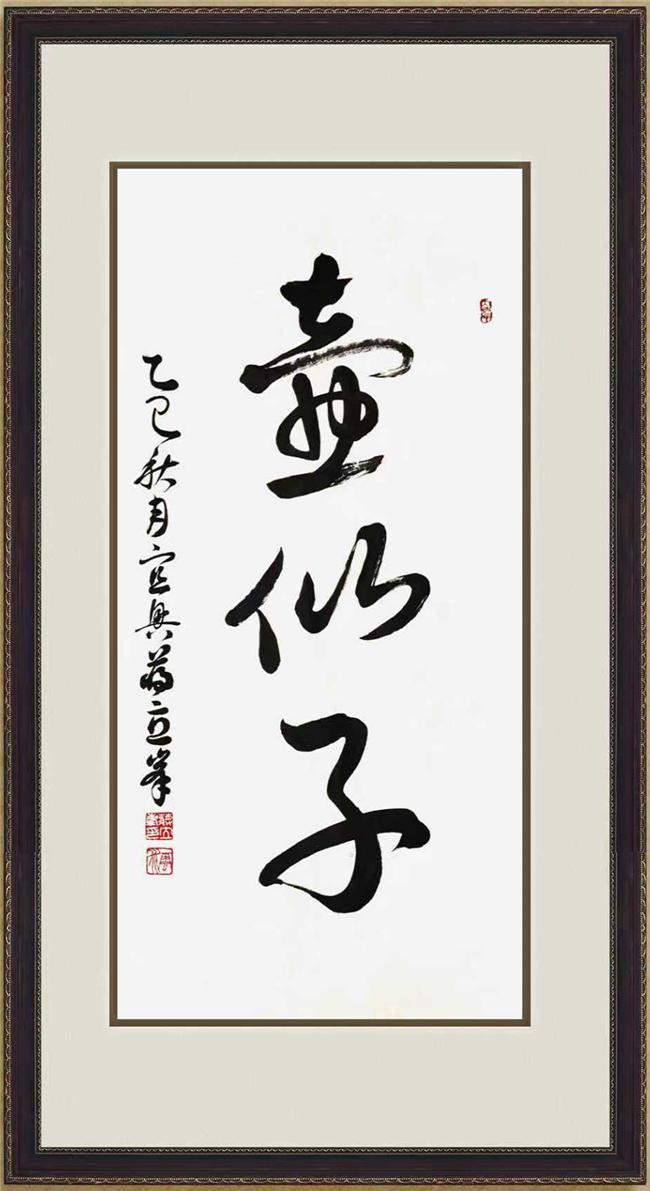 壶似子
乙巳秋月宜兴蒋立峯